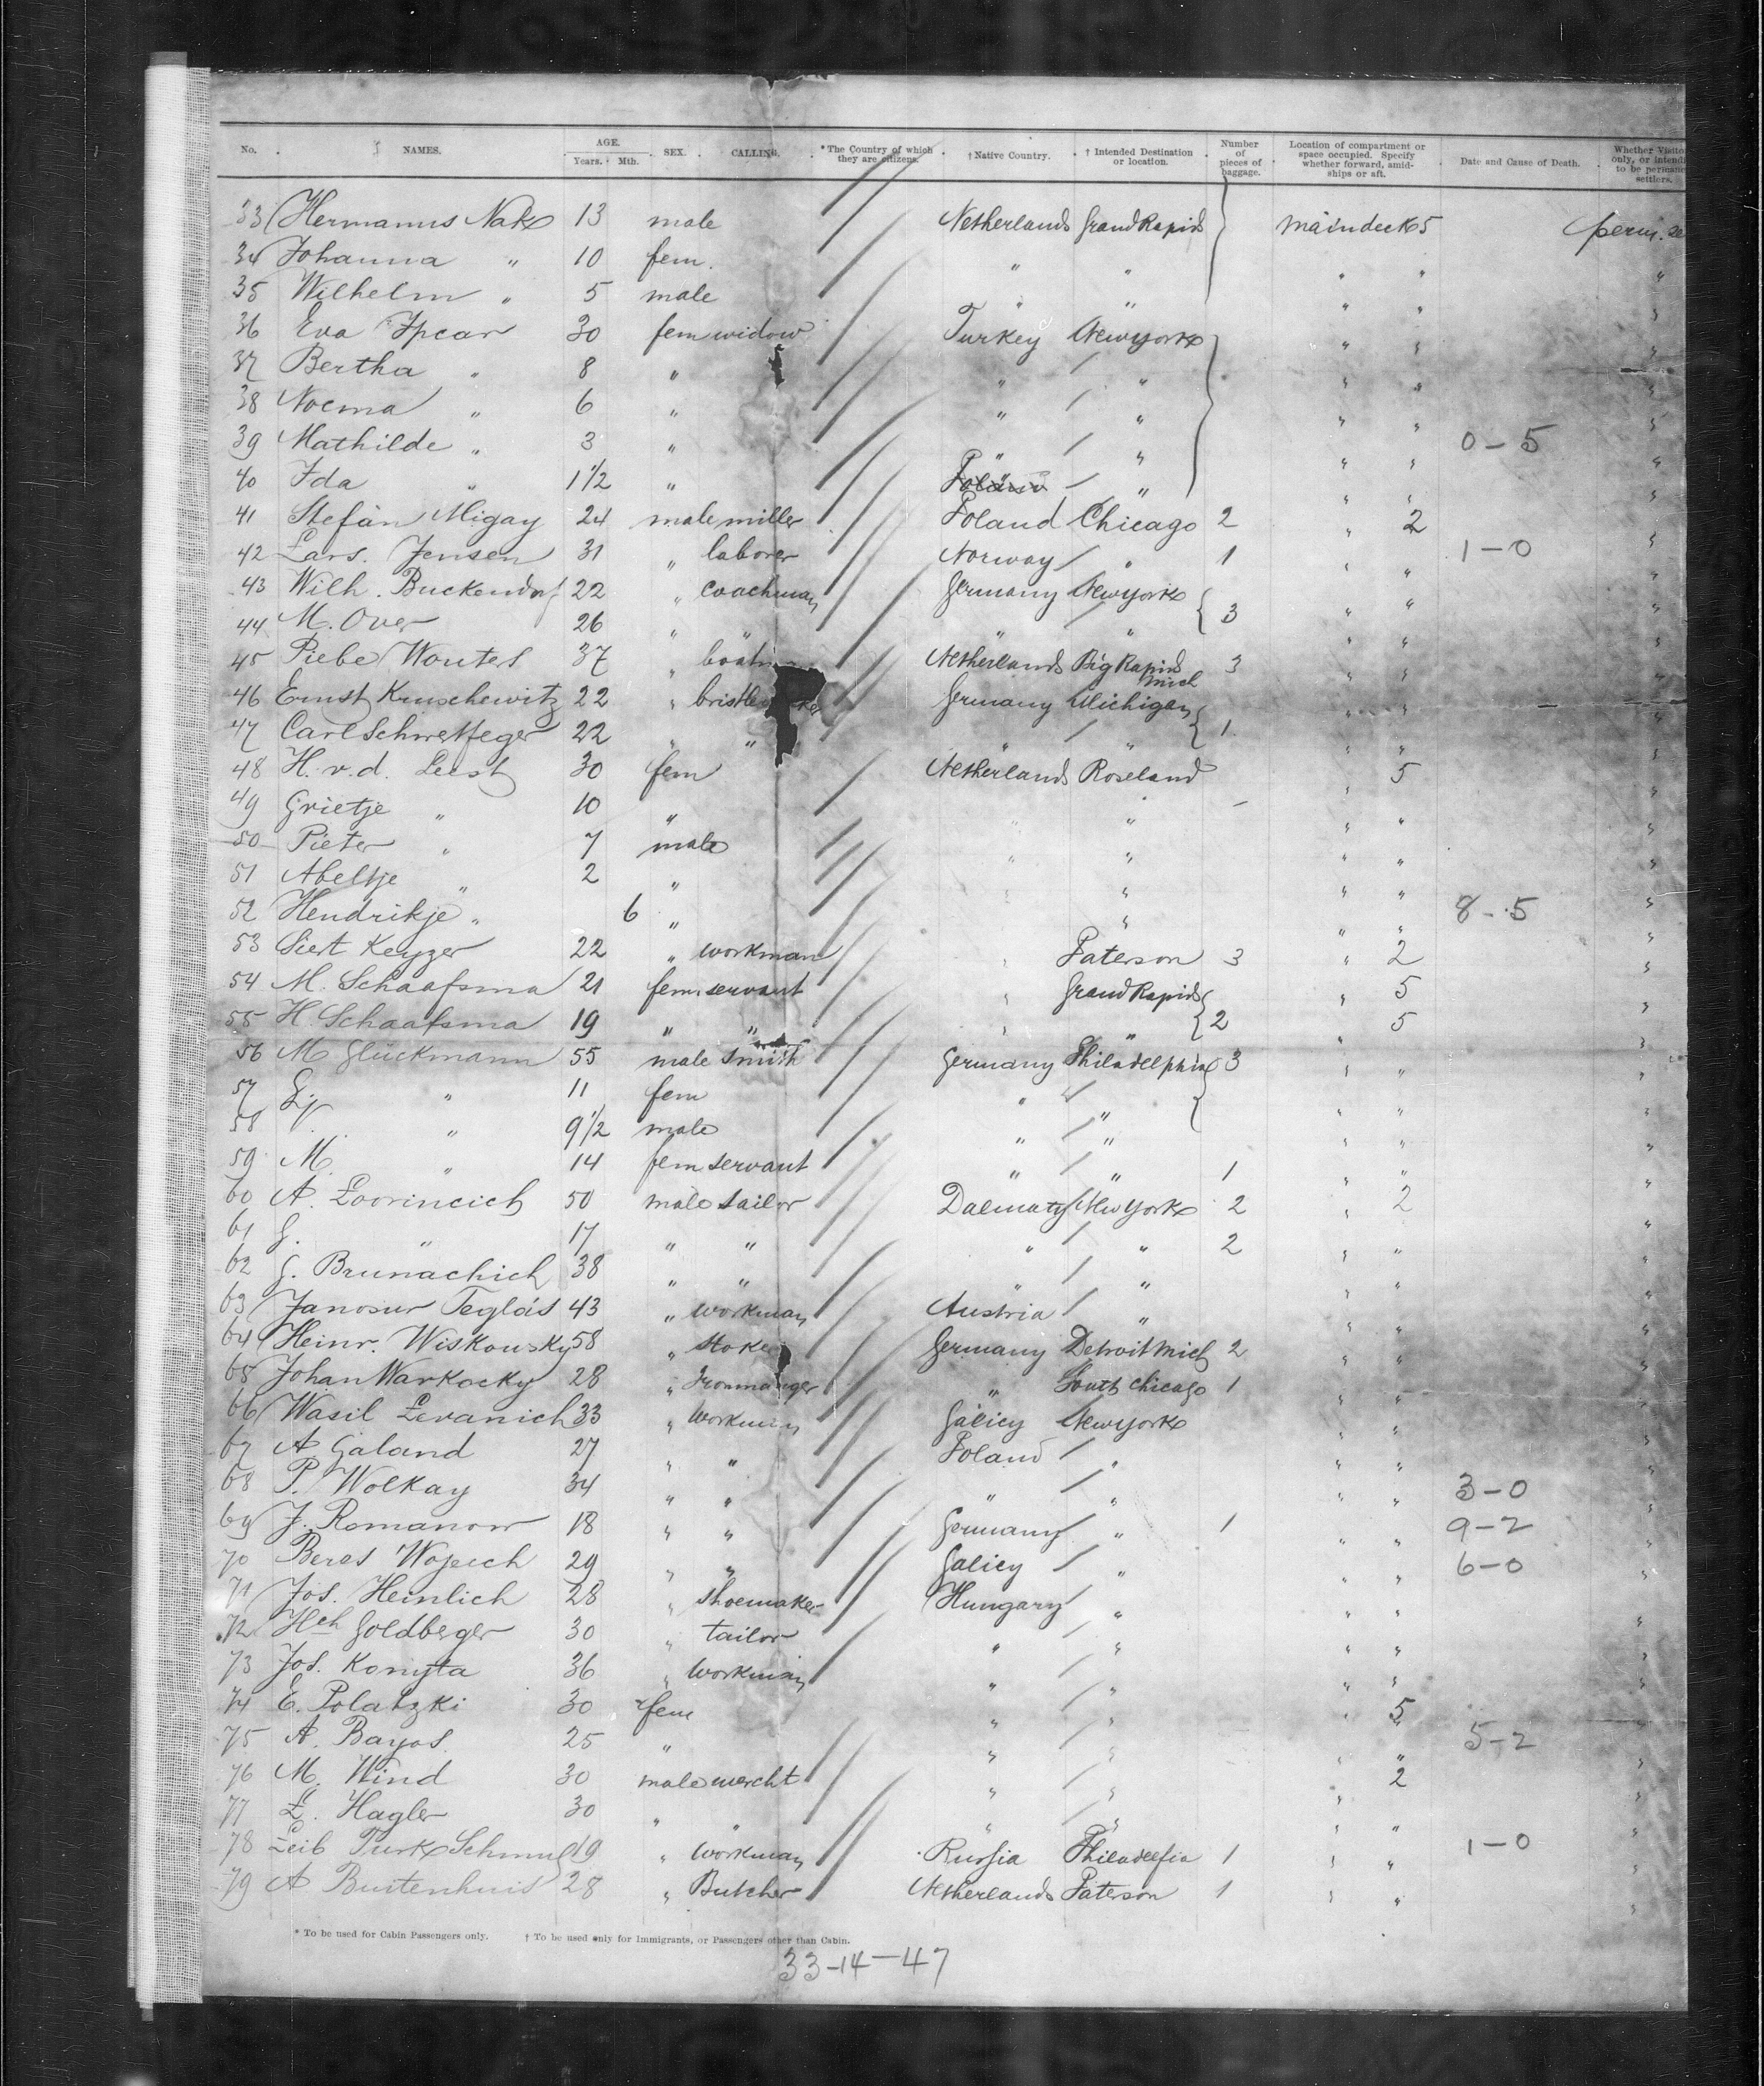 No. NAMES. AGE. Years. Mth. SEX. CALLING. *The Country of which they are citizens. †Native Country. †Intended Destination or location. Number of pieces of baggage. Location of compartment or space occupied. Specify whether forward, amidships or aft. Date and Cause of Death. Whether Visitors only, or intend to be permanent settlers.
33 Hermanus Nak 13 male Netherlands Grand Rapids maindeck 5 perm. se
34 Johanna " 10 fem. " " " " "
35 Wilhelm " 5 male " " " " "
36 Eva Ipcar 30 fem widow Turkey New york " " "
37 Bertha " 8 " " " " " "
38 Noema " 6 " " " " " "
39 Mathilde " 3 " " " " " 0-5 "
40 Ida " 1 1/2 " " " " "
41 Stefan Migay 24 male miller Poland Chicago 2 " 2 "
42 Lars. Jensen 31 " laborer Norway " 1 " " 1-0 "
43 Wilh. Buckendorf 22 " coachman Germany New york 3 " " "
44 M. Over 26 " " " " " "
45 Piebe Wouters 37 " Netherlands Big Rapids mich 3 " " "
46 Ernst Kruschewitz 22 " Germany Michigan 1 " " "
47 Carl Schwetfeger 22 " " " " " " "
48 H. v. d. Leest 30 fem Netherlands Roseland " 5 "
49 Grietje " 10 " " " " " "
50 Pieter " 7 male " " " " "
51 Abeltje " 2 " " " " " "
52 Hendrikje " 6 " " " " 8-5 "
53 Siert Keyzer 22 " workman " Paterson 3 " 2 "
54 M. Schaafsma 21 fem servant " Grand Rapids 2 " 5 "
55 H. Schaafsma 19 " " " " " 5 "
56 M Gluckmann 55 male Smith Germany Philadelphia 3 " " "
57 " 11 fem " " " " "
58 " 9 1/2 male " " " " "
59 M. " 14 fem servant " " 1 " " "
60 A. Zoorincich 50 male sailor Dalmaty New York 2 " 2 "
61 G. " 17 " " " " 2 " " "
62 G. Brunachich 38 " " " " " " "
63 Janosur Teglás 43 " workman Austria " " " "
64 Heinr. Wiskowsky 58 " stoker Germany Detroit Mich 2 " " "
65 Johan Warkocky 28 " Ironmanger " South Chicago 1 " " "
66 Wasil Levanich 33 " Workman Galicy New york " " "
67 A Galand 27 " " Poland " " " "
68 P. Wolkay 34 " " " " " " 3-0 "
69 J. Romanow 18 " " Germany " 1 " " 9-2 "
70 Beres Wojeich 29 " " Galicy " " " 6-0 "
71 Jos. Heinlich 28 " shoemaker Hungary " " " "
72 Hch Goldberger 30 " tailor " " " " "
73 Jos. Konyta 36 " Workman " " " " "
74 E. Polatzki 30 fem " " 5 "
75 A. Bayos 25 " " " " " 5-2 "
76 M. Wind 30 male mercht " " " 2 "
77 L. Hagler 30 " " " " " " "
78 Leib Turk Schmul 19 " Workman Russia Philadelfia 1 " " 1-0 "
79 A Buitenhuis 28 " Butcher Netherlands Paterson 1 " " "
* To be used for Cabin Passengers only. † To be used only for Immigrants, or Passengers other than Cabin.
33-14-47